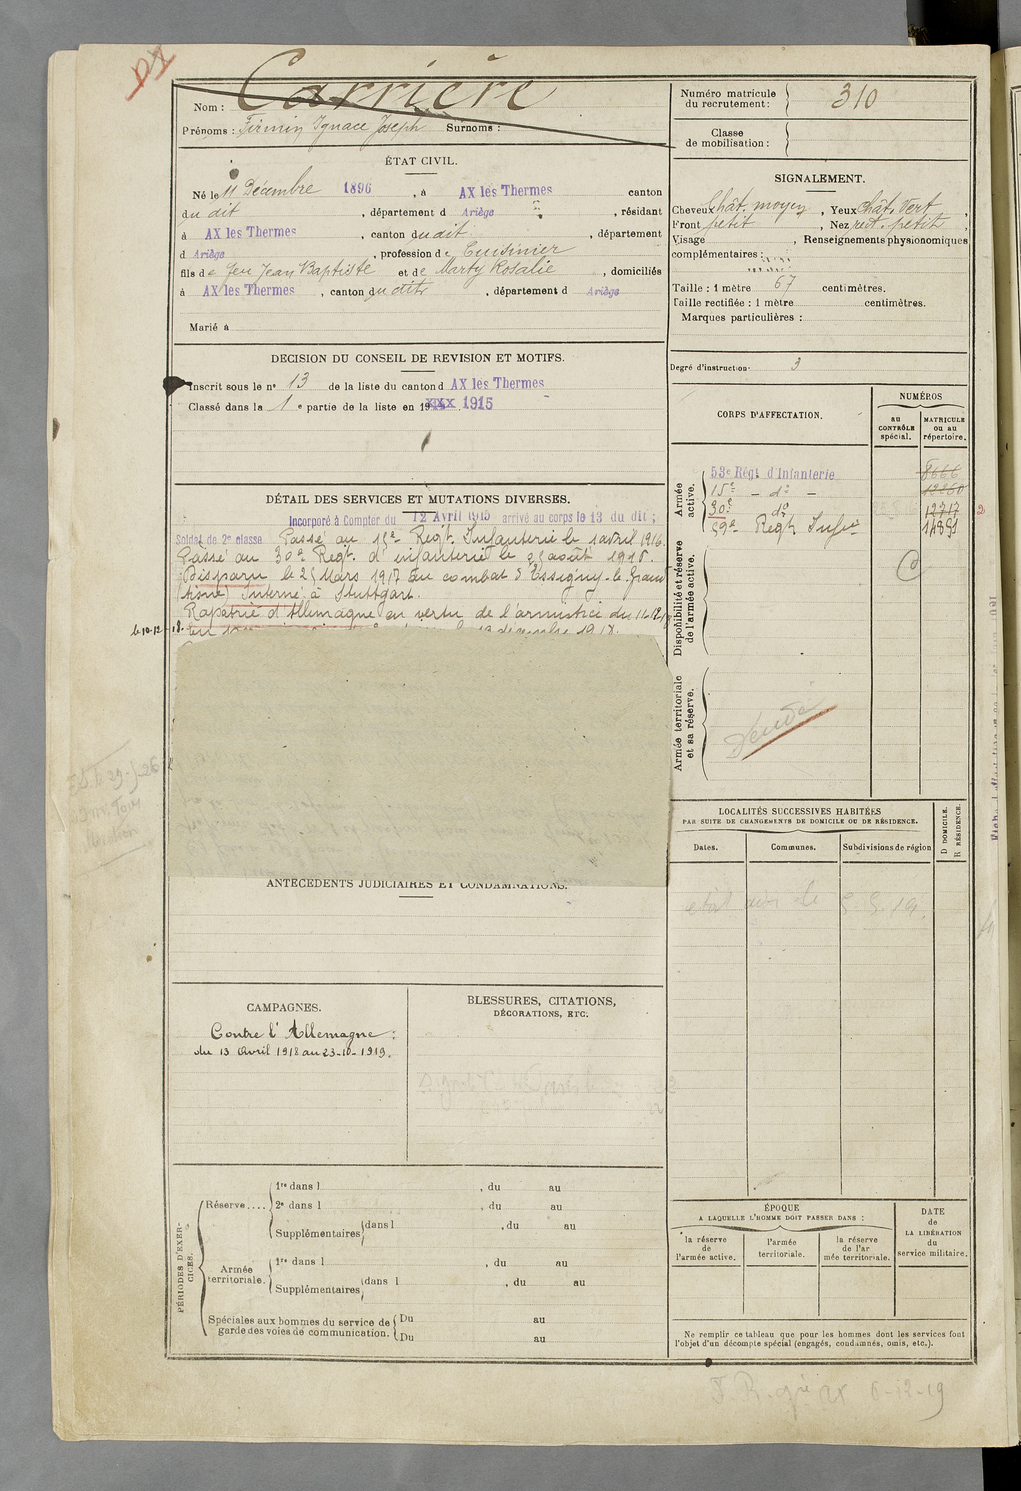 Nom : Carrière
Prénoms : Firmin Ignace Joseph Surnoms :
Numéro matricule du recrutement : 310
Classe de mobilisation :
ÉTAT CIVIL.
Né le 11 Décembre 1896, à AX les Thermes canton
du dit, département d Ariège, résidant
à AX les Thermes, canton du dit, département
d Ariège, profession de Cuisinier
fils de feu Jean Baptiste et de Marty Rosalie, domiciliés
à AX les Thermes, canton du dit, département d Ariège
Marié à
SIGNALEMENT.
Cheveux Chât. moyen, Yeux Chât. Vert,
Front petit, Nez rect. petit,
Visage , Renseignements physionomiques
complémentaires :
Taille : 1 mètre 67 centimètres.
Taille rectifiée : 1 mètre centimètres.
Marques particulières :
Degré d'instruction : 3
DECISION DU CONSEIL DE REVISION ET MOTIFS.
Inscrit sous le nº 13 de la liste du canton d AX les Thermes
Classé dans la 1e partie de la liste en 1915
DÉTAIL DES SERVICES ET MUTATIONS DIVERSES.
Incorporé à Compter du 12 Avril 1915 arrivé au corps le 13 du dit ;
Soldat de 2e classe Passé au 15e Régt. Infanterie le 1 avril 1916.
Passé au 30e Régt. d'infanterie le août
Disparu le Mars 1917 au combat d'Essigny-le-Grand
(Aisne) Interné à Stuttgart.
Rapatrié d'Allemagne en vertu de l'armistice du
le 10-12-18.
décembre 1918.
CORPS D'AFFECTATION.
NUMÉROS
au CONTRÔLE spécial.
MATRICULE ou au répertoire.
Armée active.
53e Régt d'Infanterie 8666
15e - do -
30e do 12717
59e Regt Infie
Disponibilité et réserve de l'armée active.
Armée territoriale et sa réserve.
LOCALITÉS SUCCESSIVES HABITÉES
PAR SUITE DE CHANGEMENTS DE DOMICILE OU DE RÉSIDENCE.
Dates. Communes. Subdivisions de région
D DOMICILE.
R RÉSIDENCE.
ANTÉCÉDENTS JUDICIAIRES ET CONDAMNATIONS.
CAMPAGNES.
Contre l'Allemagne :
du 13 Avril 1918 au 23-10-1919.
BLESSURES, CITATIONS,
DÉCORATIONS, ETC.
PÉRIODES D'EXERCICES.
Réserve....
1re dans l , du au
2e dans l , du au
Supplémentaires dans l , du au
Armée territoriale.
1re dans l , du au
Supplémentaires dans l , du au
Spéciales aux hommes du service de garde des voies de communication.
Du au
Du au
ÉPOQUE
A LAQUELLE L'HOMME DOIT PASSER DANS :
la réserve de l'armée active.
l'armée territoriale.
la réserve de l'armée territoriale.
DATE de LA LIBÉRATION du service militaire.
Ne remplir ce tableau que pour les hommes dont les services font
l'objet d'un décompte spécial (engagés, condamnés, omis, etc.).
6-12-19